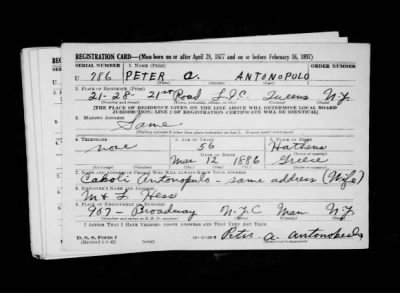 REGISTRATION CARD—(Men born on or after April 28, 1877 and on or before February 16, 1897)
SERIAL NUMBER 1. NAME (Print) ORDER NUMBER
U 786 PETER A. ANTONOPULO
2. PLACE OF RESIDENCE (Print)
21-28- 21st Road L.I.C. Queens N.Y.
[THE PLACE OF RESIDENCE GIVEN ON THE LINE ABOVE WILL DETERMINE LOCAL BOARD
JURISDICTION; LINE 2 OF REGISTRATION CERTIFICATE WILL BE IDENTICAL]
3. MAILING ADDRESS
Same
4. TELEPHONE 5. AGE IN YEARS 6. PLACE OF BIRTH
none 56 Hathens
DATE OF BIRTH
Mar 12 1886 Greece
7. NAME AND ADDRESS OF PERSON WHO WILL ALWAYS KNOW YOUR ADDRESS
Antonopulo - same address (Wife)
8. EMPLOYER'S NAME AND ADDRESS
M & L Hess
9. PLACE OF EMPLOYMENT OR BUSINESS
907 - Broadway N.Y.C Man. N.Y.
I AFFIRM THAT I HAVE VERIFIED ABOVE ANSWERS AND THAT THEY ARE TRUE.
D. S. S. Form 1 Peter A. Antonopulo